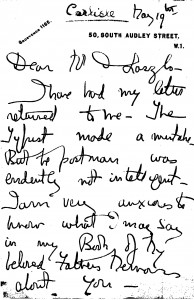 Carlisle
May 19th
Grosvenor 1180.
50, SOUTH AUDLEY STREET,
W.1.
Dear M
I have had my letter
returned to me - The
Typist made a mistake
But the postman was
evidently not intelligent
I am very anxious to
know what I may say
in my Book of my
beloved Fathers Memoirs
about you -